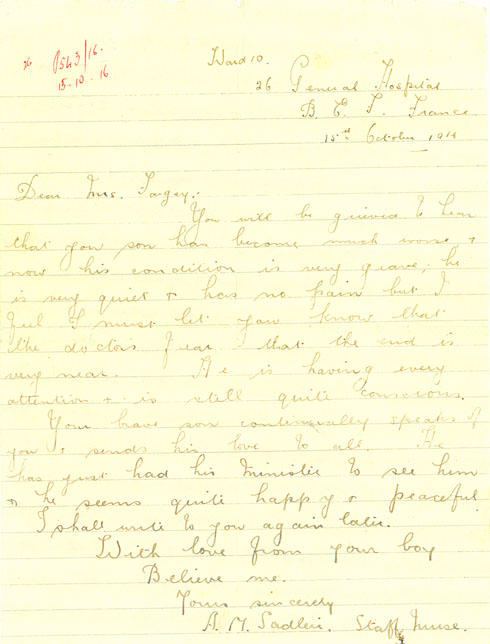 Ward 10.
26 P543/16.
15.10.16
26 General Hospital
B. E. F. France
15th October 1916
Dear Mrs.
You will be grieved to hear
that your son has become much worse &
now his condition is very grave; he
is very quiet & has no pain but I
feel I must let you know that
the doctors fear that the end is
very near. He is having every
attention & is still quite conscious.
Your brave son continually speaks of
you & sends his love to all. He
has just had his Minister to see him
& he seems quite happy & peaceful
I shall write to you again later.
With love from your boy
Believe me.
Yours sincerely
A. M. Sadleir. Staff Nurse.